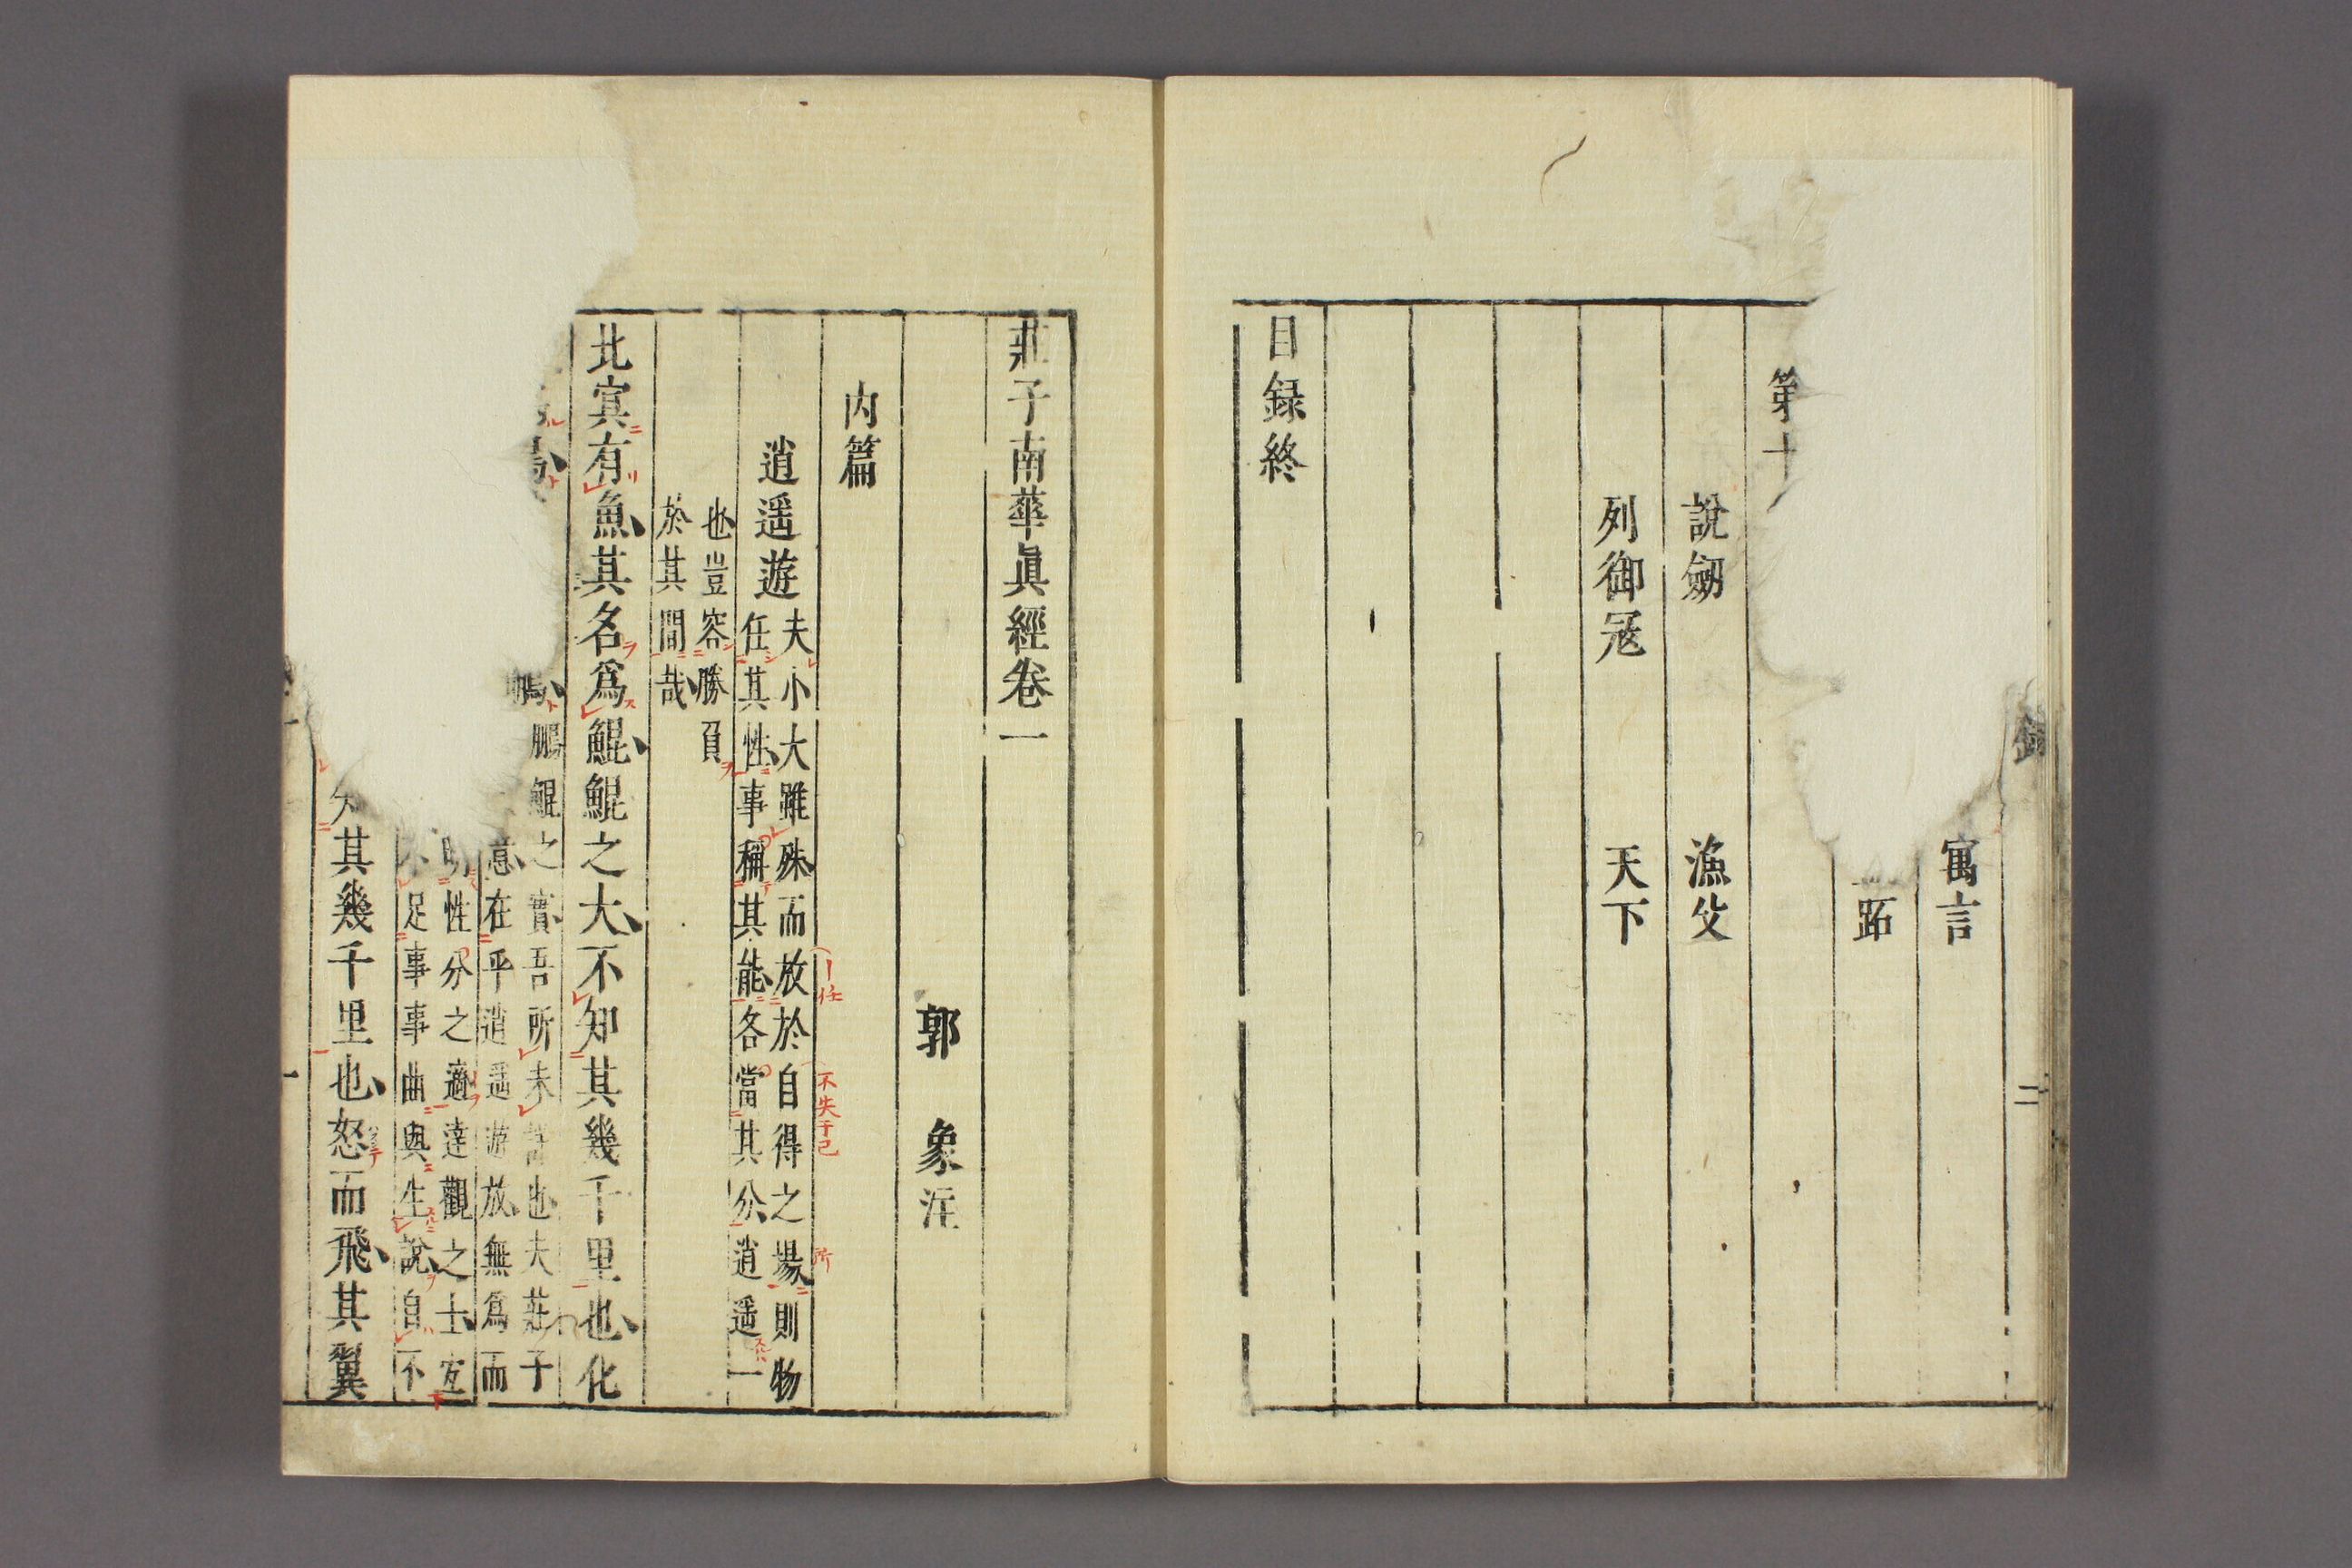 寓言
跖
第十
說劒 漁父
列御冦 天下
目録終
錄
二
莊子南華眞經卷一
郭 象 注
内篇
逍遥遊
夫小大雖殊而放於自得之塲則物
任其性事稱其能各當其分逍遥一
也豈容勝負
於其間哉
北㝠有魚其名爲鯤鯤之大不知其幾千里也化
鵬鯤之實吾所未詳也夫莊子
意在乎逍遥遊放無爲而
明性分之適達觀之士宐
不足事事曲與生說自不
知其幾千里也怒而飛其翼
一
任
不失于己
所